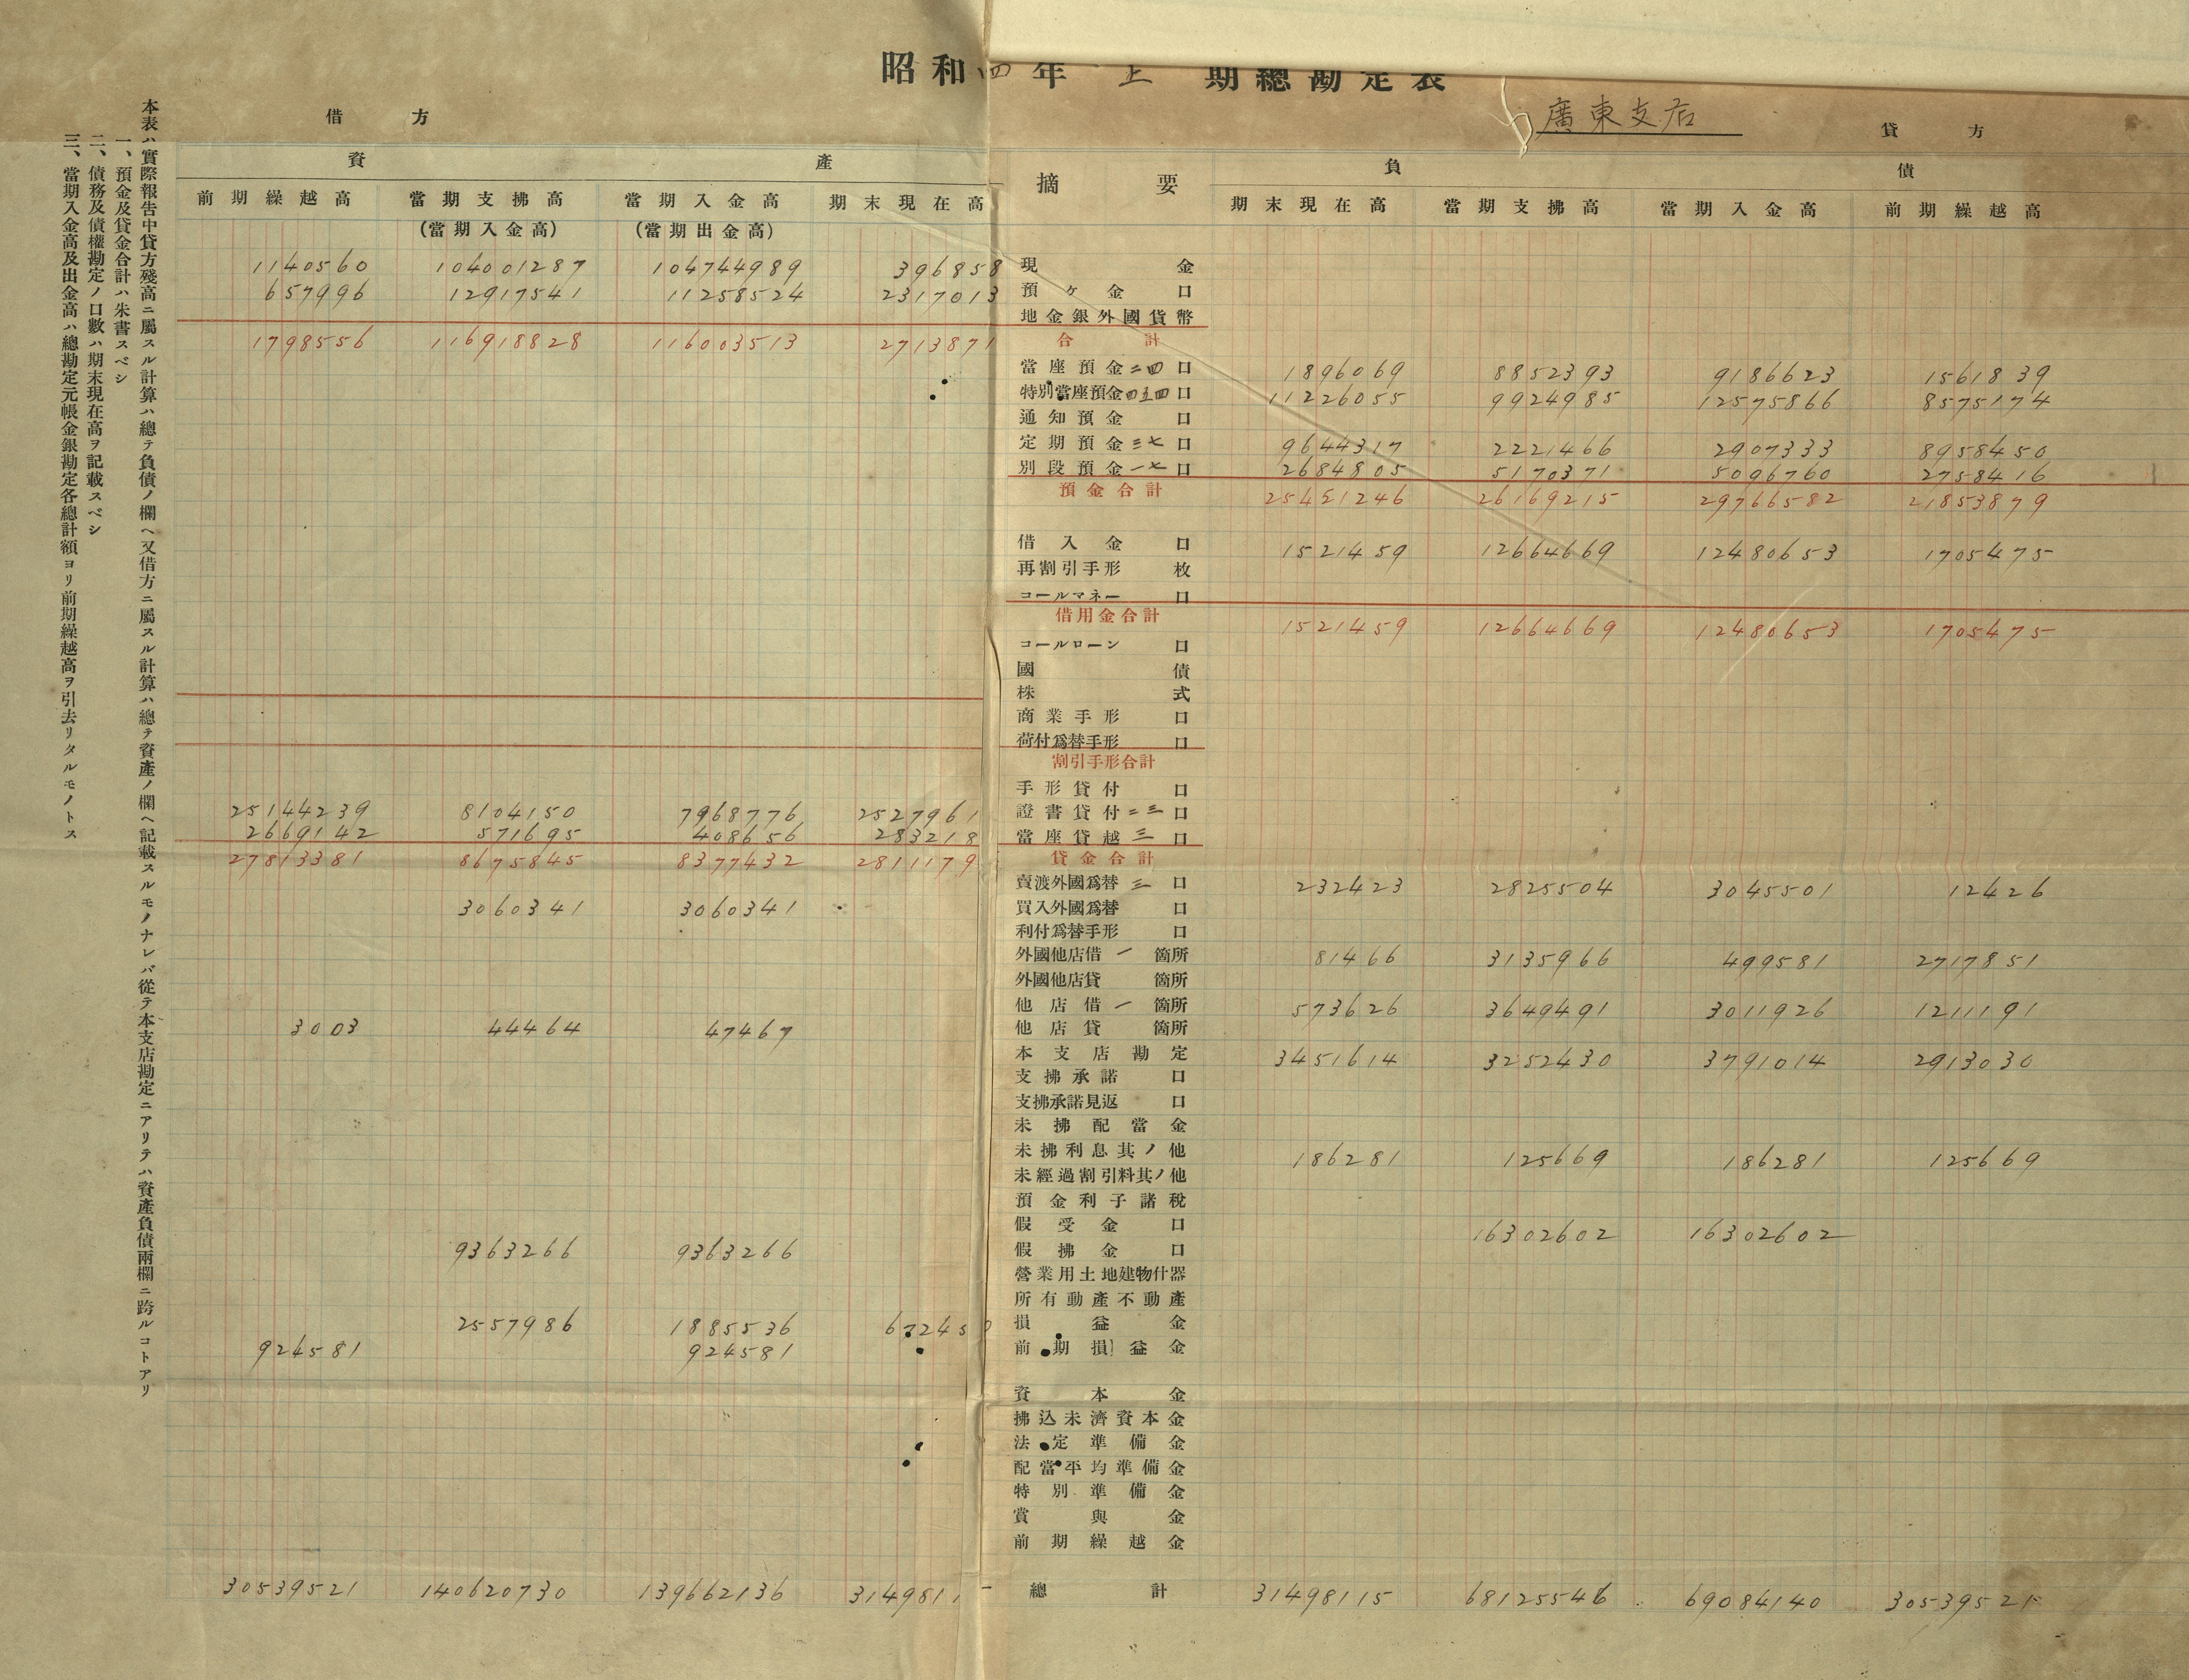 昭和四年 上 期總勘定表
廣東支店
借方
貸方
資產
摘要
負債
前期繰越高 當期支拂高 當期入金高 期末現在高
(當期入金高) (當期出金高)
期末現在高 當期支拂高 當期入金高 前期繰越高
1140560 104001287 104744989 396858 現金
657996 12917541 11258524 2317013 預ヶ金 口
地金銀外國貨幣
1798556 116918828 116003513 2713871 合計
當座預金 二四 口 1896069 8852393 9186623 1561839
特別當座預金 四五四 口 11226055 9924985 12575866 8575174
通知預金 口
定期預金 三七 口 9644317 2221466 2907333 8958450
別段預金 一七 口 2684805 5170371 5096760 2758416
預金合計 25451246 26169215 29766582 21853879
借入金 口 1521459 12664669 12480653 1705475
再割引手形 枚
コールマネー 口
借用金合計 1521459 12664669 12480653 1705475
コールローン 口
國債
株式
商業手形 口
荷付爲替手形 口
割引手形合計
手形貸付 口
25144239 8104150 7968776 2527961 證書貸付 二三 口
2669142 571695 408656 283218 當座貸越 三 口
27813381 8675845 8377432 2811179 貸金合計
賣渡外國爲替 三 口 232423 2825504 3045501 12426
3060341 3060341 買入外國爲替 口
利付爲替手形 口
外國他店借 一 箇所 81466 3135966 499581 2717851
外國他店貸 箇所
他店借 一 箇所 573626 3649491 3011926 1211191
3003 44464 47467 他店貸 箇所
本支店勘定 3451614 3252430 3791014 2913030
支拂承諾 口
支拂承諾見返 口
未拂配當金
未拂利息其ノ他 186281 125669 186281 125669
未經過割引料其ノ他
預金利子諸稅
假受金 口 16302602 16302602
9363266 9363266 假拂金 口
營業用土地建物什器
所有動產不動產
2557986 1885536 672450 損益金
924581 924581 前期損益金
資本金
拂込未濟資本金
法定準備金
配當平均準備金
特別準備金
賞與金
前期繰越金
30539521 140620730 139662136 3149811 總計 31498115 68125546 69084140 30539521
本表ハ實際報告中貸方殘高ニ屬スル計算ハ總テ負債ノ欄ヘ又借方ニ屬スル計算ハ總テ資產ノ欄ヘ記載スルモノナレバ從テ本支店勘定ニアリテハ資產負債兩欄ニ跨ルコトアリ
一、預金及貸金合計ハ朱書スベシ
二、債務及債權勘定ノ口數ハ期末現在高ヲ記載スベシ
三、當期入金高及出金高ハ總勘定元帳金銀勘定各總計額ヨリ前期繰越高ヲ引去リタルモノトス